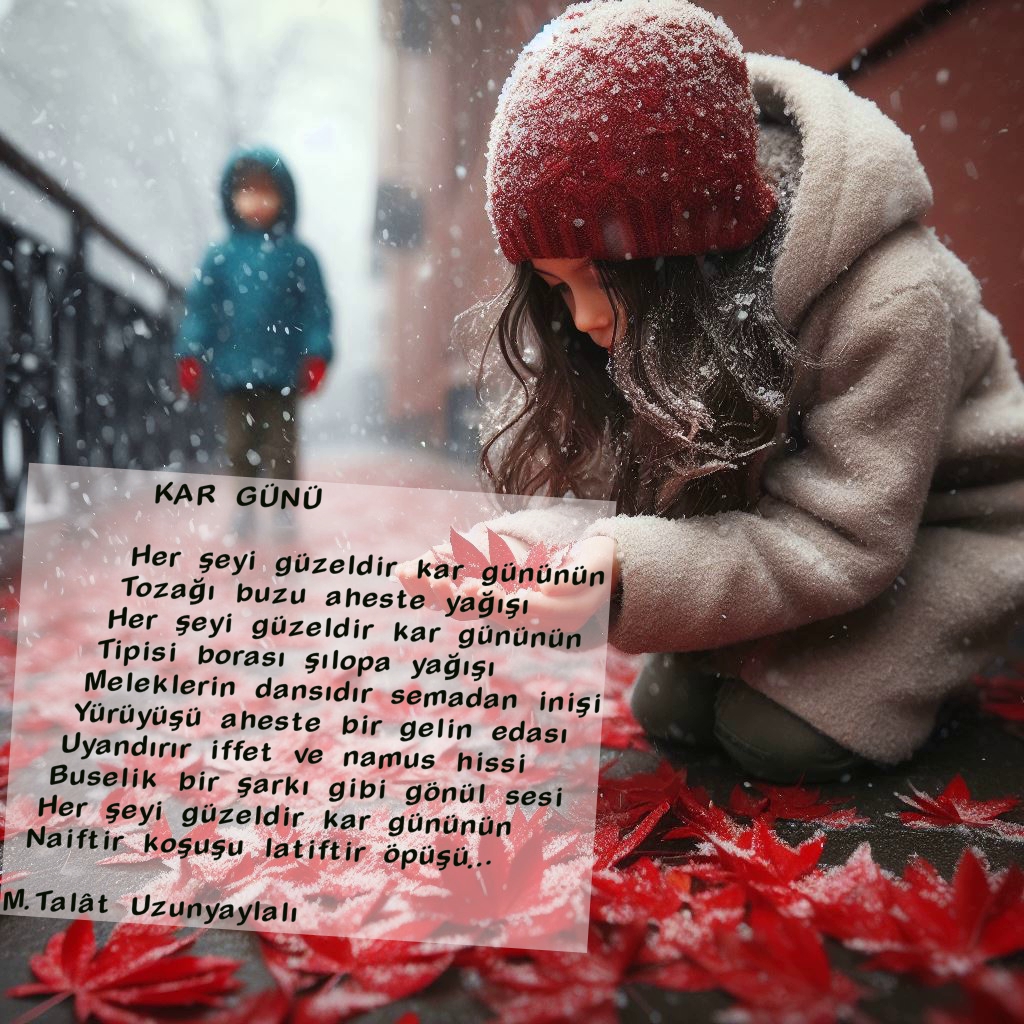 KAR GÜNÜ
Her şeyi güzeldir kar gününün
Tozağı buzu aheste yağışı
Her şeyi güzeldir kar gününün
Tipisi borası şılopa yağışı
Meleklerin dansıdır semadan inişi
Yürüyüşü aheste bir gelin edası
Uyandırır iffet ve namus hissi
Buselik bir şarkı gibi gönül sesi
Her şeyi güzeldir kar gününün
Naiftir koşuşu latiftir öpüşü...
M.Talât Uzunyaylalı